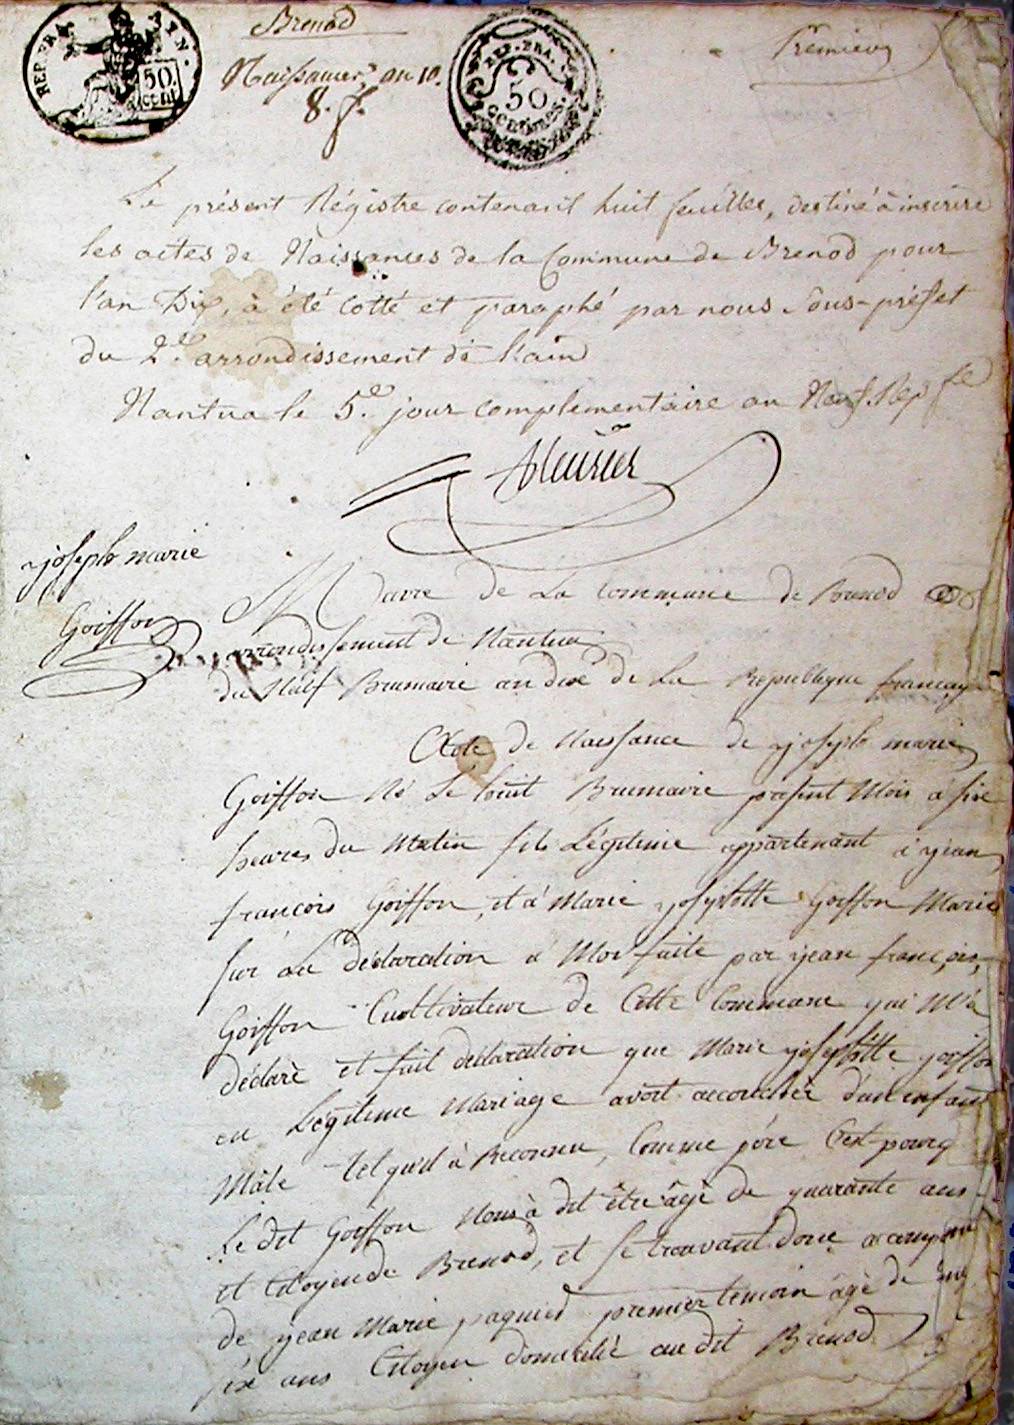 REP. FRA.
50
cent
Brenod
Naissances an 10.
8. f.
REP. FRA.
50
CENTIMES
Premier
Le présent Régistre contenant huit feuilles, destiné à inscrire
les actes de Naissances de la Commune de Brenod pour
l'an Dix, à été cotté et paraphé par nous Sous-préfet
du 2.e arrondissement de l'ain
Nantua le 5.e jour complementaire an Neuf Rep fe
joseph marie
Goiffon
Mairie de La Commune de Brenod
arrondissement de Nantua
du Neuf Brumaire an dix de La Republique francay
Acte de Naissance de joseph marie
Goiffon Né Le huit Brumaire present Mois a six
heures du Matin fils Légitime appartenant à jean
françois Goiffon, et à Marie josephtte Goiffon Marie
sur La declaration a Moi faite par jean françois
Goiffon Cultivateur de Cette Commune qui M'a
déclaré et fait déclaration que Marie josephtte goiffon
en Légitime Mariage avoit accouchée d'un enfant
Mâle tel qu'il à Reconnu, Comme pére C'est pourq
Le dit Goiffon Nous à dit être âgé de quarante ans
et Citoyen de Brenod, et se trouvant donc accompagné
de jean Marie paquier premier temoin âgé de
six ans Citoyen domicilié au dit Brenod